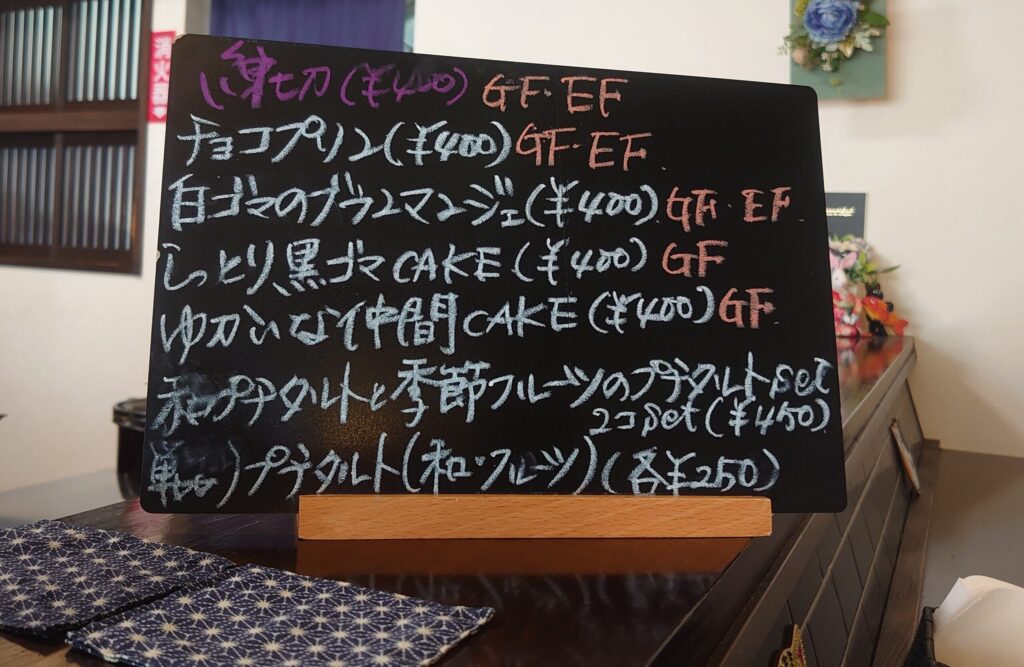 練切(¥400) GF・EF
チョコプリン(¥400) GF・EF
白ゴマのブランマンジェ(¥400) GF・EF
しっとり黒ゴマCAKE(¥400) GF
ゆかいな仲間CAKE(¥400) GF
和プチタルトと季節フルーツのプチタルトset
2コset(¥450)
単品)プチタルト(和・フルーツ)(各¥250)
消火器